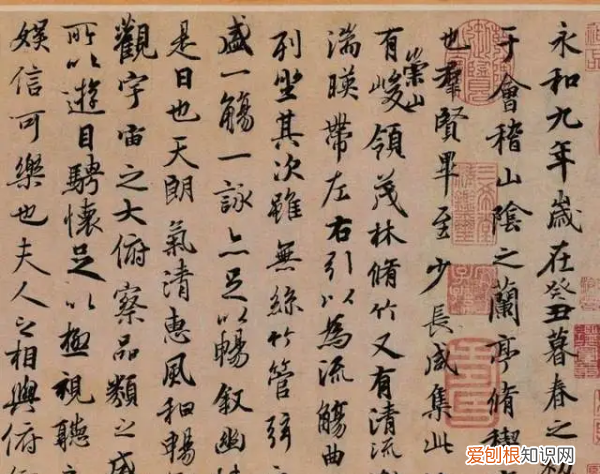 永和九年歲在癸丑暮春之初
于會稽山陰之蘭亭脩稧
也羣賢畢至少長咸集此
有崇山峻領茂林脩竹又有清流
湍暎帶左右引以為流觴曲
列坐其次雖無絲竹管弦
盛一觴一詠亦足以暢敘幽情
是日也天朗氣清惠風和暢
觀宇宙之大俯察品類之盛
所以遊目騁懷足以極視聽之
娛信可樂也夫人之相與俯
爱刨根知识网